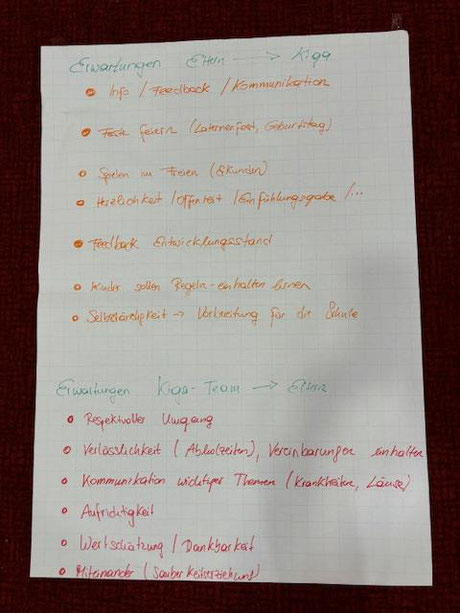 Erwartungen Eltern → Kiga
• Info / Feedback / Kommunikation
• Feste feiern (Laternenfest, Geburtstag)
• Spielen im Freien (Erkunden)
• Herzlichkeit / Offenheit / Einfühlungsgabe /...
• Feedback Entwicklungsstand
• Kinder sollen Regeln einhalten lernen
• Selbständigkeit → Vorbereitung für die Schule
Erwartungen Kiga-Team → Eltern
• Respektvoller Umgang
• Verlässlichkeit (Abholzeiten), Vereinbarungen einhalten
• Kommunikation wichtiger Themen (Krankheiten, Läuse)
• Aufrichtigkeit
• Wertschätzung / Dankbarkeit
• Miteinander (Sauberkeitserziehung)